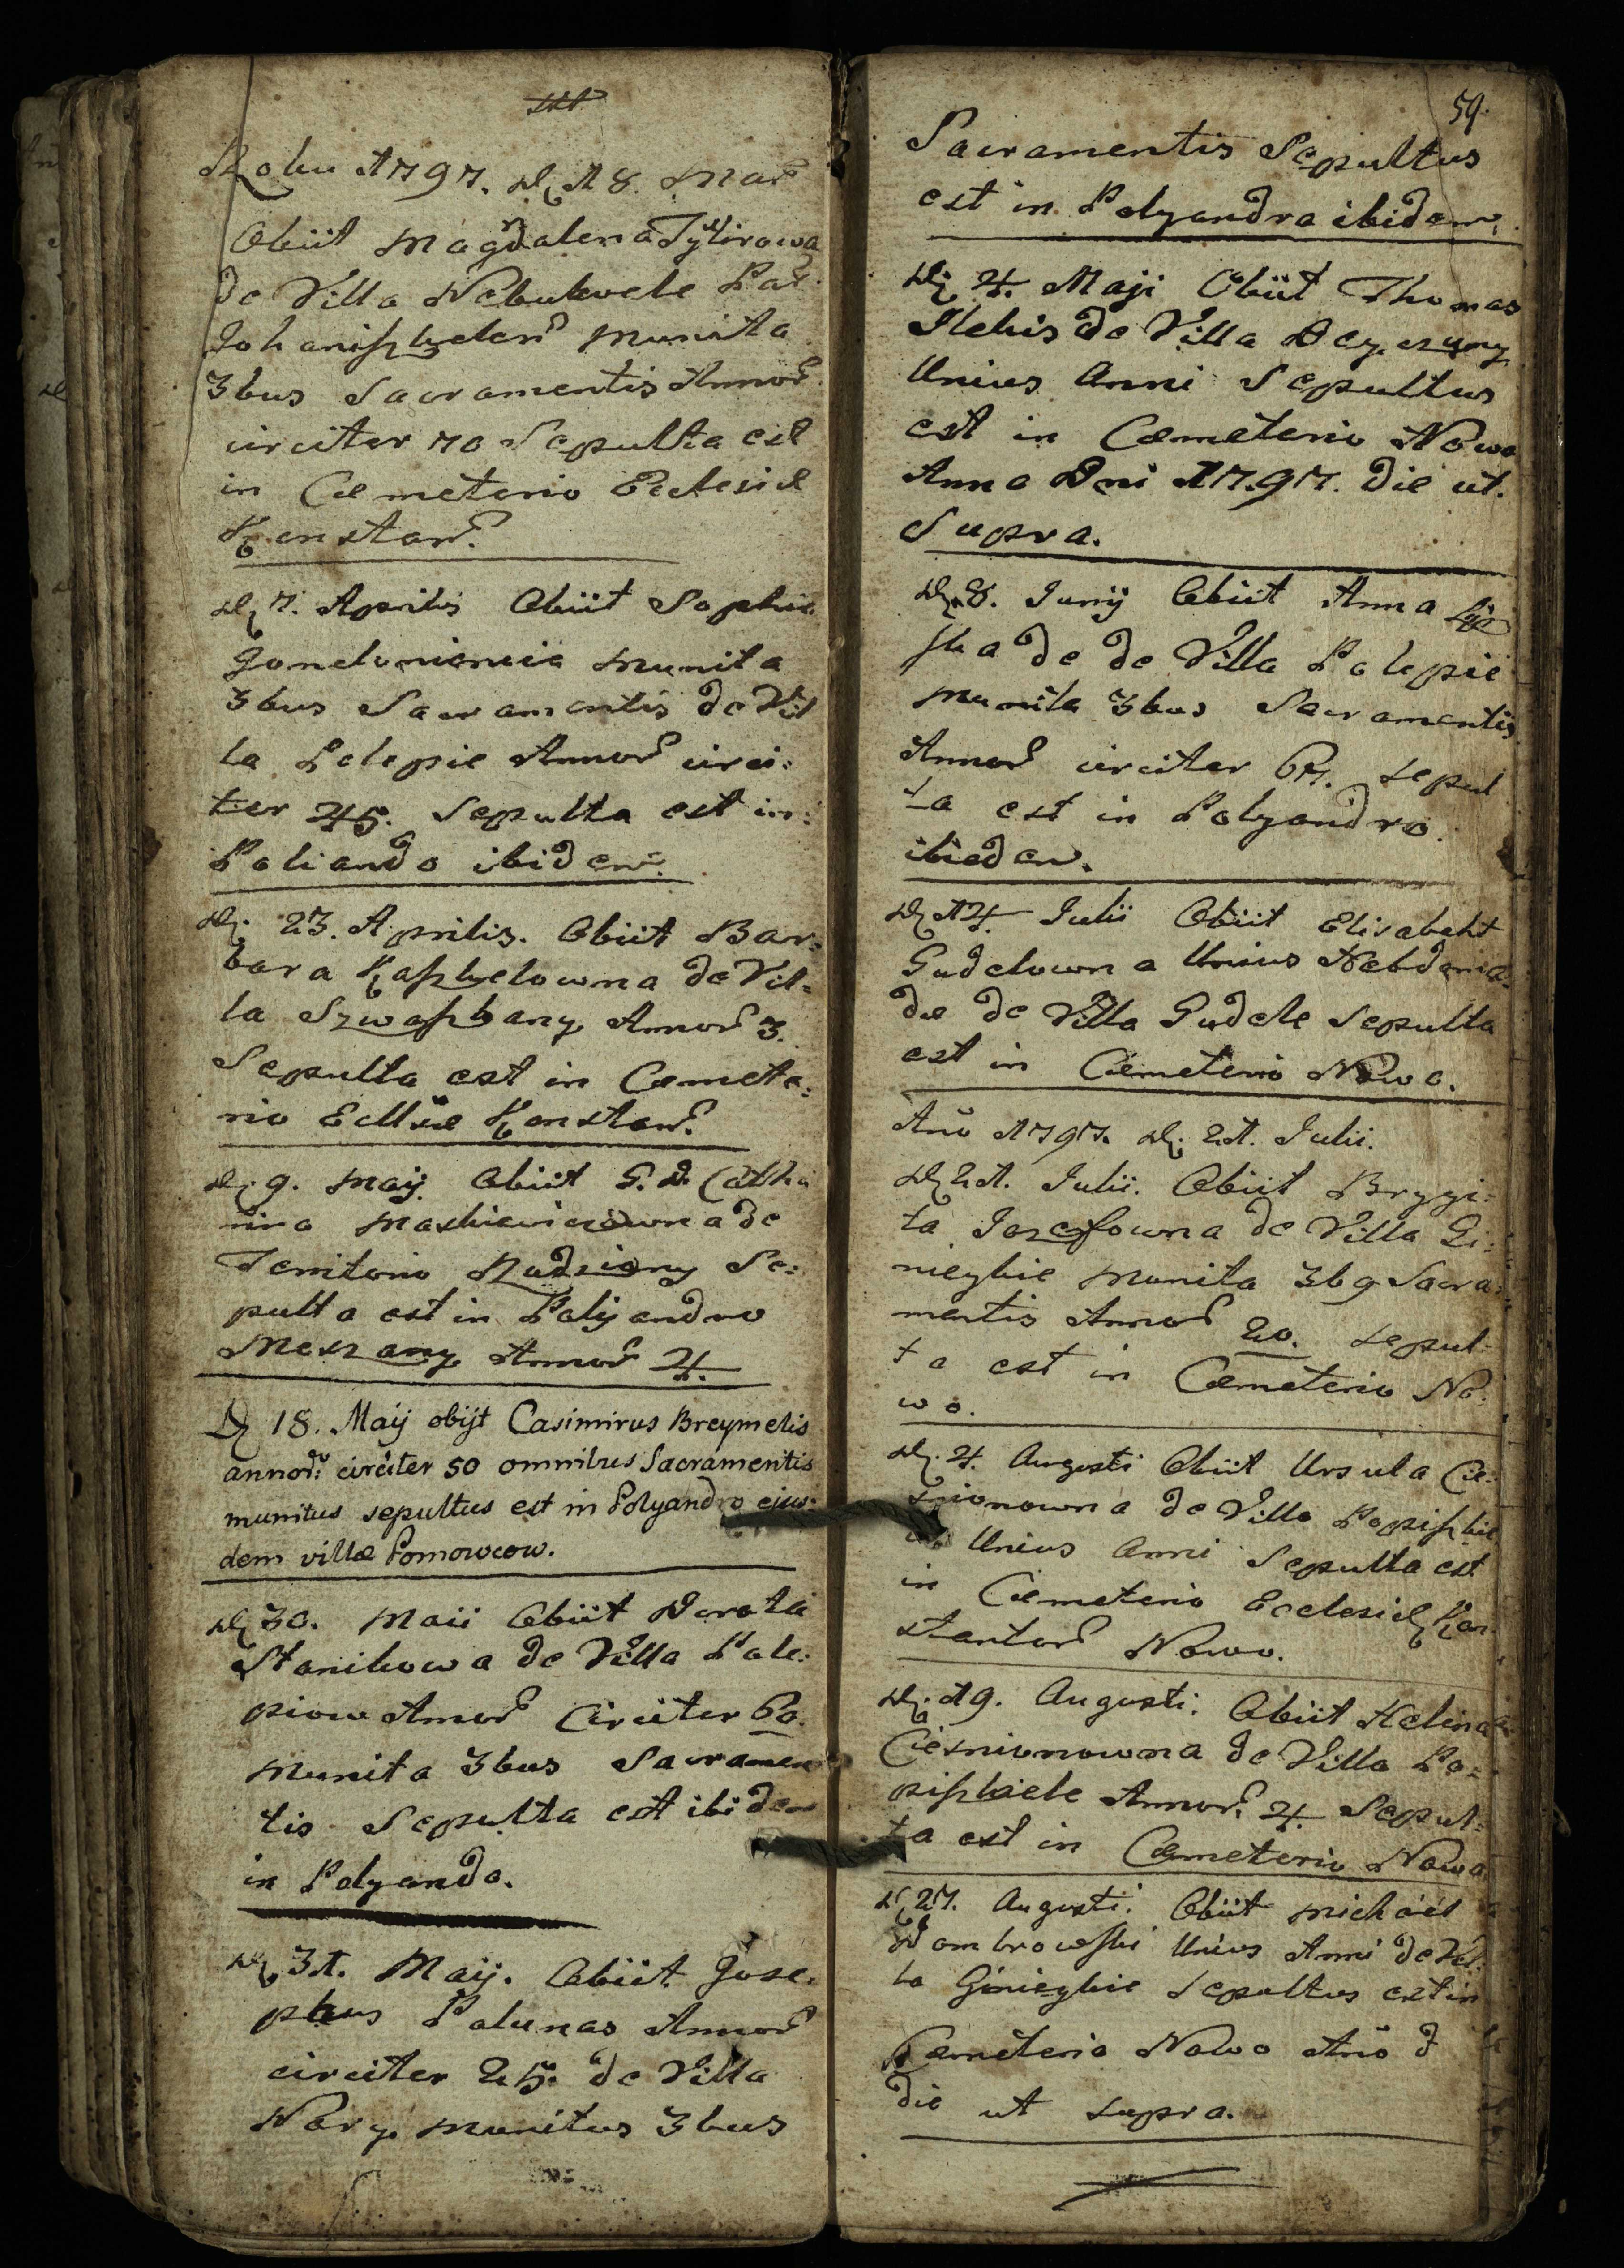 Roku 1797. D. 18. Mar
Obiit Magdalena
de Villa Nebukoele Par.
Johaniszkelen munita
3bus Sacramentis Annor
circiter 70 Sepulta est
in Cœmeterio Ecclesiæ
Konstan.
D. 7. Aprilis Obiit Sophia
munita
3bus Sacramentis de Vil
la Polepie Annor circi:
ter 45. Sepulta est in:
Poliando ibidem.
D. 23. Aprilis. Obiit Bar:
bara Kaszkelowna de Vil:
la Szwaszbany Annor 3.
Sepulta est in Cœmete:
rio Ecllsiæ Konstan.
D. 9. Maij Obiit G. D. Catha
rina Maskiewiczowna de
Territorio Rudziany Se:
pulta est in Polijandro
Meszany Annor 4.
D 18. Maij obijt Casimirus Breymelis
annor: circiter 50 omnibus Sacramentis
munitus sepultus est in Polyandro ejus:
dem villæ Pomowcow.
D 30. Maii Obiit Dorota
Stanikowa de Villa Pole:
piow Annor Circiter 60.
munita 3bus Sacramen
tis Sepulta est ibidem
in Polyando.
D. 31. Maij. Obiit Jose:
phus Palunas Annor
circiter 25. de Villa
Nary munitus 3bus
59.
Sacramentis Sepultus
est in Polyandra ibidem.
D. 4. Maji Obiit Thomas
Ilekis de Villa
Unius Anni Sepultus
est in Cœmeterio Nowo
Anno Dni 1797. die ut.
Supra.
D. 8. Junij Obiit Anna
ska de de Villa Polepie
munita 3bus Sacramentis
Annor circiter 67. sepul
ta est in Polyandro
ibiedem.
D 14. Julii Obiit Elisabeht
Gudelowna Unius Hebdoma:
dæ de Villa Gudele Sepulta
est in Cœmeterio Nowo.
Año 1797. D. 21. Julii.
D 21. Julii. Obiit Brygi:
ta Jozefowna de Villa Gi:
nieybie munita 3b9 Sacra:
mentis Annor 20. sepul:
ta est in Cœmeterio No:
wo.
D. 4. Augusti Obiit Ursula Cie:
snionowna de Villa Popiszkie
Unius Anni Sepulta est
in Cœmeterio Ecclesiæ Kon
stantor Nowo.
D. 19. Augusti. Obiit Helina
Ciesnionowna de Villa Po:
piszkiele Annor. 4. Sepul:
ta est in Cœmeterio Nowo
D 27. Augusti. Obiit Michaël
Dombrowski Unius Anni de Vil:
la Ginieybie Sepultus est in
Cemeterio Nowo Año d
die ut supra.